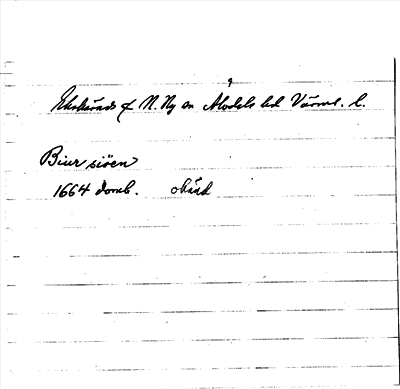 Ekshärads o N. Ny en Älvdals hd Värml. l.
Biursiöen
1664 domb. okänd